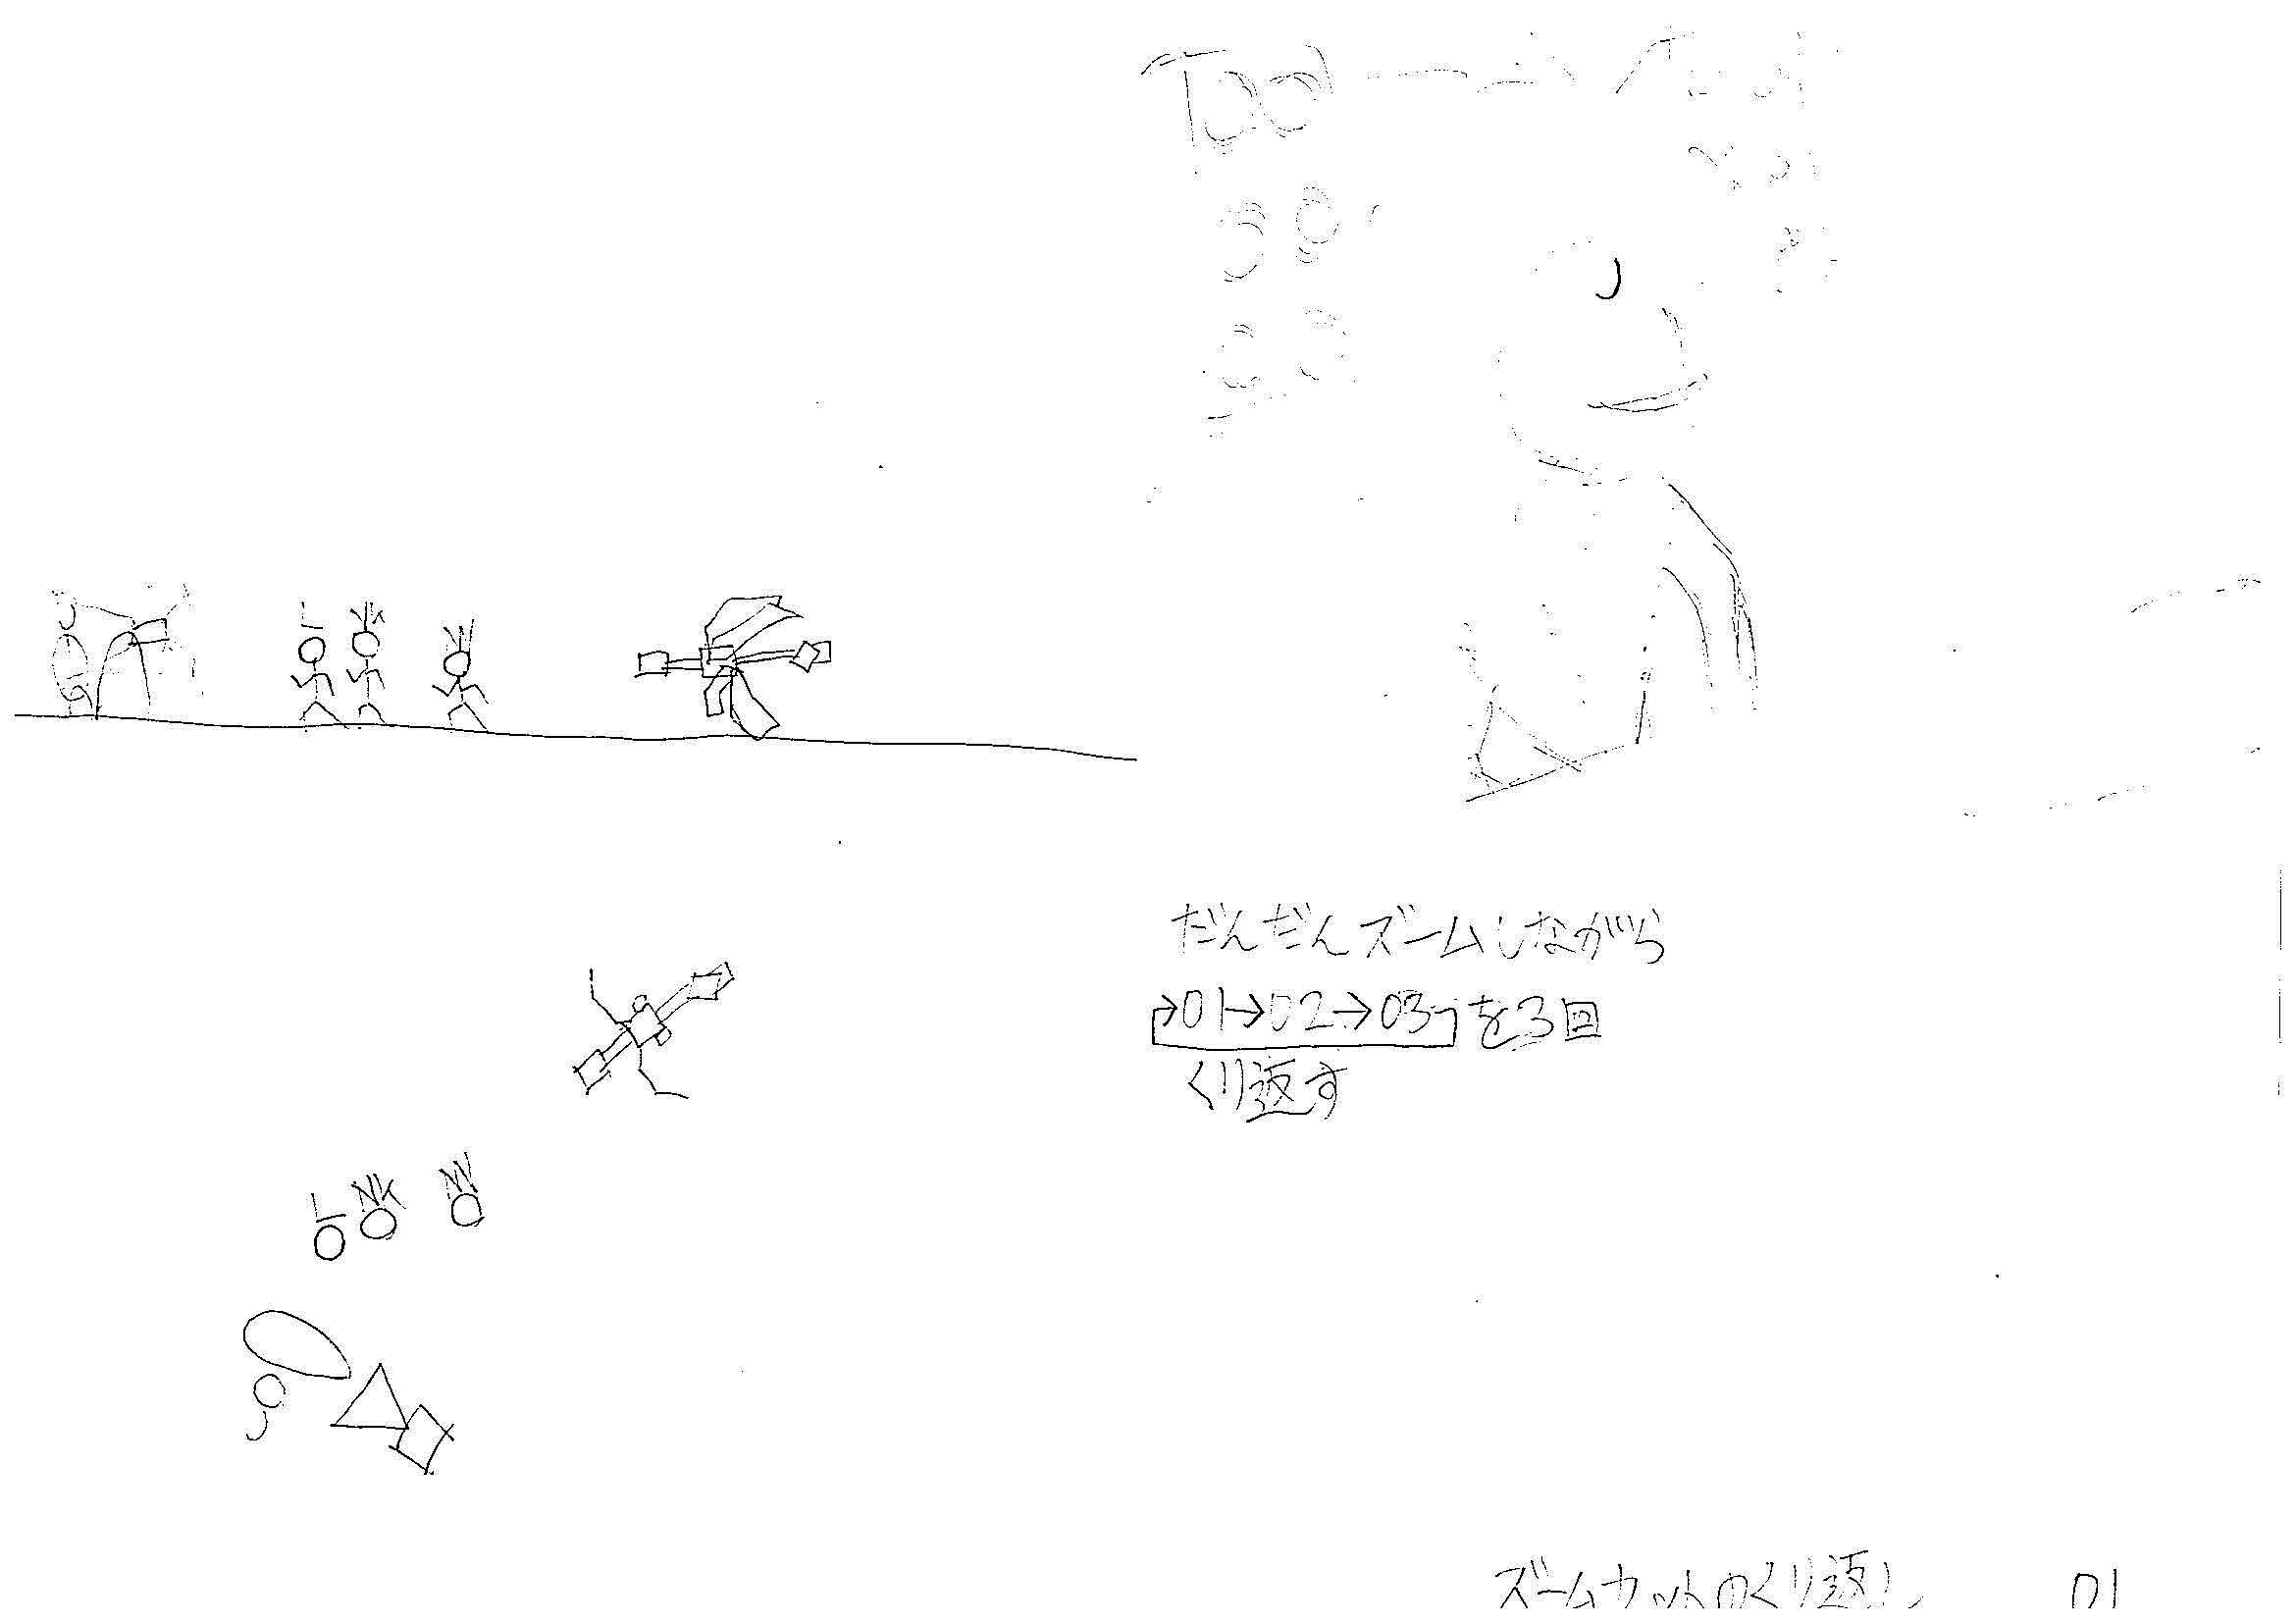 L NK W
だんだんズームしながら
→01→02→03 を3回
くり返す
L NK W
ズームカットのくり返し 01